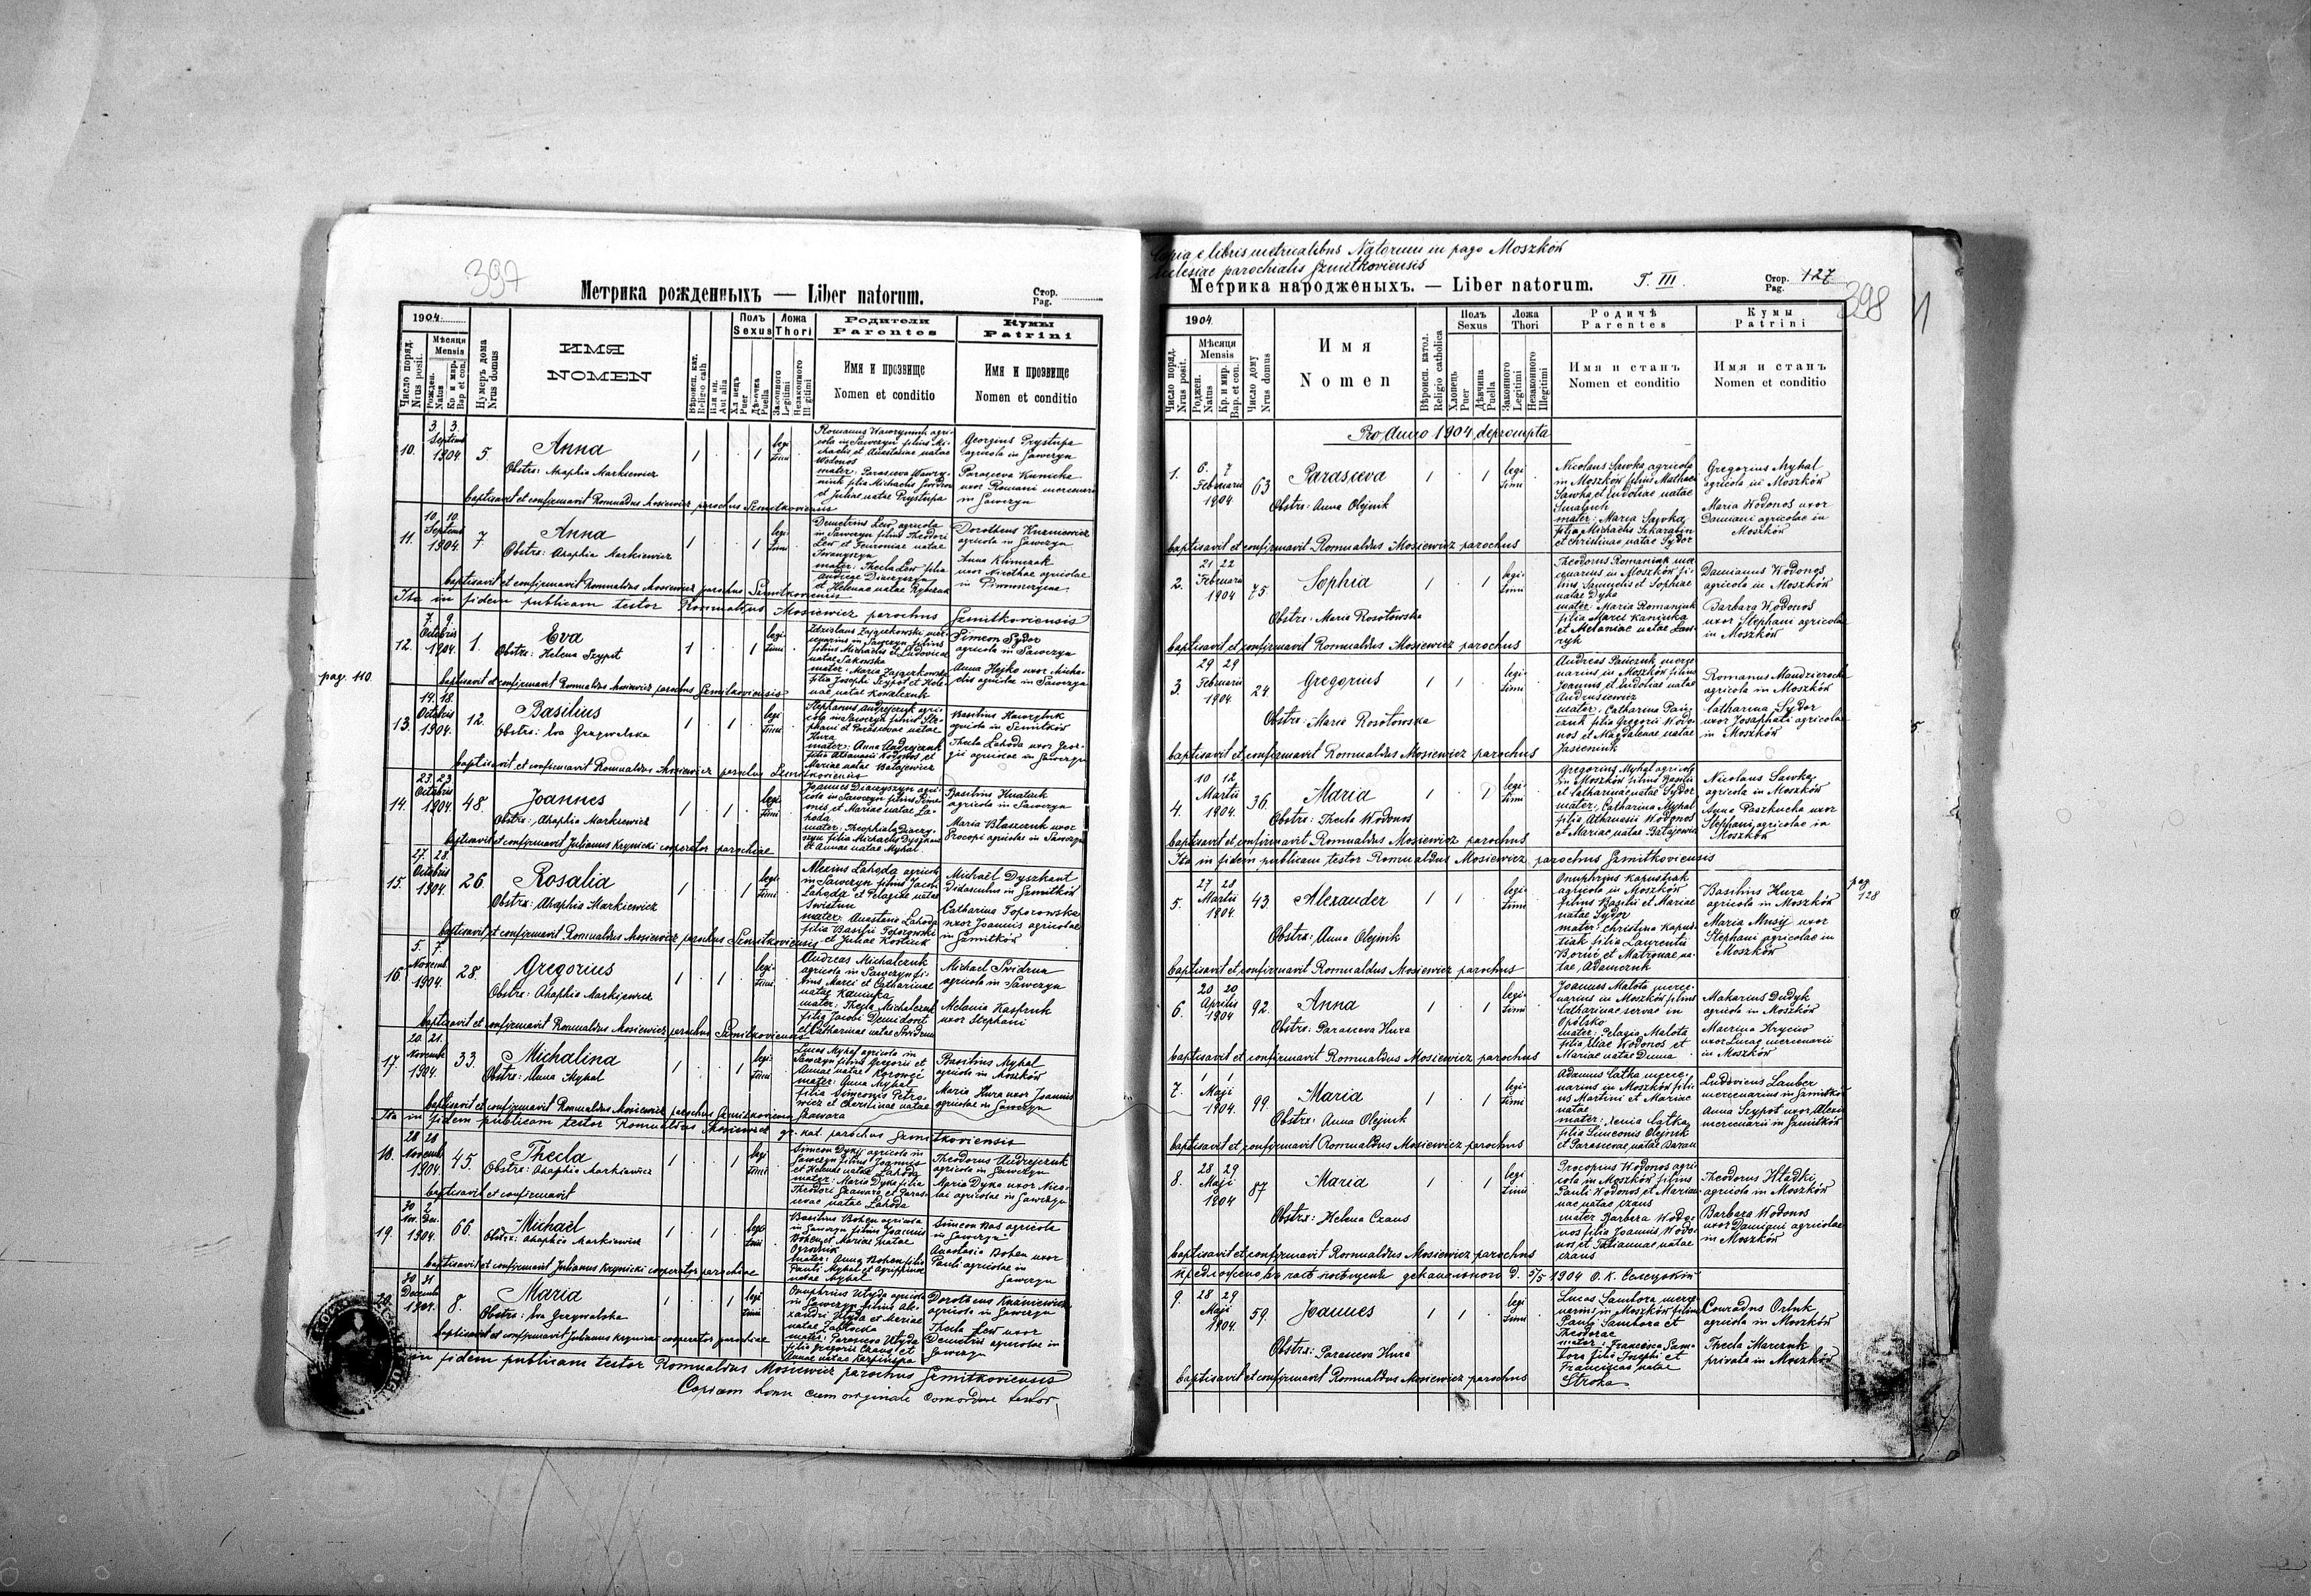 397
Метрика рожденныхъ — Liber natorum.
Стор.
Pag.
1904
Число поряд.
Nrus posit.
Мѣсяця
Mensis
Рожден.
Natus
Кр и мир.
Bap et con.
Нумеръ дома
Nrus domus
ИМЯ
NOMEN
Вѣроисп. кат.
Religo cath
Или ин.
Aut alia
Полъ
Sexus
Хл пецъ
Puer
Дѣвочка
Puella
Ложа
Thori
Законного
Legitimi
Незаконного
Illegitimi
Родители
Parentes
Имя и прозвище
Nomen et conditio
Кумы
Patrini
Имя и прозвище
Nomen et conditio
10.
3. 3.
Septem
1904.
5.
Anna
Obstrx: Ahaphia Markiewicz
1
1
legi
timi
Romanus Wawrynink agri-
cola in Sawczyn filius Mi-
chaelis et Anastasiae natae
Wodonos
mater: Parasceva Wawry-
nink filia Michaelis
et Juliae natae Prystupa
Georgius Prystupa
agricola in Sawczyn
Parasceva Kunicka
uxor Romani mercenarii
in Sawczyn
baptisavit et confirmavit Romualdus Mosiewicz parochus Szmitkoviensis
11.
10. 10.
Septem
1904.
7.
Anna
Obstrx: Ahaphia Markiewicz
1
1
legi-
timi
Demetrius Lew agricola
in Sawczyn filius Theodori
Lew et Feuroniae natae
Iwanyszyn
mater: Thecla Lew filia
Andreae Diaczyszyn
et Helenae natae Rybczak
Dorotheus Kuzniewicz
agricola in Sawczyn
Anna Klimczak
uxor Nicethae agricolae
in
baptisavit et confirmavit Romualdus Mosiewicz parochus Szmitkoviensis
Ita in fidem publicam testor Romualdus Mosiewicz parochus Szmitkoviensis
12.
7. 9.
Octobris
1904.
1.
Eva
Obstrx: Helena Szypit
1
1
legi-
timi
Zdzislaus Zajączkowski mer-
cenarius in Sawczyn filius
filius Michaelis et Ludovicae
natae Sakowska
mater: Maria Zajączkowska
filia Josephi Szypot et Hele-
nae natae Kowalczuk
Simeon Sydor
agricola in Sawczyn
Anna Hejko uxor Micha-
elis agricolae in Sawczyn
pag. 110.
baptisavit et confirmavit Romualdus Mosiewicz parochus Szmitkoviensis
13.
14. 18.
Octobris
1904.
12.
Basilius
Obstrx: Eva Grzywalska
1
1
legi
timi
Stephanus Andrejczuk agri-
cola in Sawczyn filius Ste-
phani et Parascevae natae
Hura
mater: Anna Andrejczuk
filia Athanasii Wodonos et
Mariae natae Batajewicz
Basilius Hawryluk
agricola in Szmitków
Thecla Lahoda uxor Geor-
gii agricolae in Sawczyn
baptisavit et confirmavit Romualdus Mosiewicz parochus Szmitkoviensis
14.
23. 23
Octobris
1904
48.
Joannes
Obstrx: Ahaphia Markiewicz
1
1
legi-
timi
Joannes Diaczyszyn agri-
cola in Sawczyn filius Sime-
onis et Mariae natae La-
hoda
mater: Theophila Diaczy-
szyn filia Michaelis Dyszkant
et Annae natae Myhal
Basilius Hnatiuk
agricola in Sawczyn
Maria Błaszczuk uxor
Procopi agricolae in Sawczyn
baptisavit et confirmavit Julianus Krynicki cooperator parochiae
15.
27. 28.
Octobris
1904.
26.
Rosalia
Obstrx: Ahaphia Markiewicz
1
1
legi-
timi
Alexius Lahoda agricola
in Sawczyn filius Jacobi
Lahoda et Pelagiae natae
Swistun
mater: Anastasia Lahoda
filia Basilii Toporowski
et Juliae Kostiuk
Michaël Dyszkant
Didasculus in Szmitków
Catharina Toporowska
uxor Joannis agricolae
in Szmitków
baptisavit et confirmavit Romualdus Mosiewicz parochus Szmitkoviensis
16.
5. 7.
Novemb.
1904.
28.
Gregorius
Obstrx: Ahaphia Markiewicz
1
1
legi-
timi
Andreas Michalczuk
agricola in Sawczyn fi-
lius Marci et Catharinae
natae Kaminska
mater: Thecla Michalczuk
filia Jacobi
et Catharinae natae Swidrua
Michael Swidrua
agricola in Sawczyn
Melania Kasprnk
uxor Stephani
baptisavit et confirmavit Romualdus Mosiewicz parochus Szmitkoviensis
17.
20. 21.
Novembr
1904.
33.
Michalina
Obstrx: Anna Myhal
1
1
legi-
timi
Lucas Myhal agricola in
Sawczyn filius Gregorii et
Annae natae Korowei
mater: Anna Myhal
filia Simeonis Petro-
wicz et Christinae natae
Szawara
Basilius Myhal
agricola in Moszków
Maria Hura uxor Joannis
agricolae in Sawczyn
baptisavit et confirmavit Romualdus Mosiewicz parochus Szmitkovien
Ita in fidem publicam testor Romualdus Mosiewicz gr. kat. parochus Szmitkoviensis
18.
28 28
Novemb.
1904.
45.
Thecla
Obstrx: Ahaphia Markiewicz
1
1
legi
timi
Simeon Dyky agricola in
Sawczyn filius Joannis
et Helenae natae Lahoda
mater: Maria Dyka filia
Theodori Szawara et Paras-
cevae natae Lahoda
Theodorus Andrejczuk
agricola in Sawczyn
Maria Dyka uxor Nico-
lai agricolae in Sawczyn
baptisavit et confirmavit
19.
30 2
Nov. Dec.
1904.
66.
Michaël
Obstrx: Ahaphia Markiewicz
1
1
legi-
timi
Basilius Bohen agricola
in Sawczyn filius Joannis
Bohen et Mariae natae
Ogrodnik
mater: Anna Bohen filia
Pauli Myhal et Agrippinae
natae Myhal
Simeon Bas agricola
in Sawczyn
Anastasia Bohen uxor
Pauli agricolae in
Sawczyn
baptisavit et confirmavit Julianus Krynicki cooperator parochiae
20.
30 31
Decemb
1904.
8.
Maria
Obstrx: Eva Grzywalska
1
1
legi
timi
Onuphrius Utyda agricola
in Sawczyn filius Ale-
xandri Utyda et Mariae
natae Zablocka
mater: Parasceva Utyda
filia Gregorii Czaus et
Annae natae Karpińska
Dorotheus Kuzniewicz
agricola in Sawczyn
Thecla Lew uxor
Demetrii agricolae in
Sawczyn
baptisavit et confirmavit Julianus Krynicki cooperator parochiae
in fidem publicam testor Romualdus Mosiewicz parochus Szmitkoviensis
Copiam hanc cum originali concordare testor
Copia e libris metricalibus Natorum in pago Moszków
ecclesiae parochialis Szmitkoviensis
Метрика народженыхъ. — Liber natorum.
T. III.
Стор.
Pag.
127
398
1904.
Число поряд.
Nrus posit.
Мѣсяця
Mensis
Рожден.
Natus
Кр. и мир.
Bap. et con.
Число дому
Nrus domus
Имя
Nomen
Вѣроисп. катол.
Religio catholica
Полъ
Sexus
Хлопець
Puer
Дѣвчина
Puella
Ложа
Thori
Законного
Legitimi
Незаконного
Illegitimi
Родичѣ
Parentes
Имя и станъ
Nomen et conditio
Кумы
Patrini
Имя и станъ
Nomen et conditio
Pro Anno 1904 deprompta
1.
6. 7
Februarii
1904
63
Parasceva
Obstrx: Anna Olejnik
1
1
legi
timi
Nicolaus Sawka agricola
in Moszków filius Mathaei
Sawka et Eudoliae natae
Smalych
mater: Maria Sawka
filia Michaelis Szkarabin
et Christinae natae Sydor
Gregorius Myhal
agricola in Moszków
Maria Wodonos uxor
Damiani agricolae in
Moszków
baptisavit et confirmavit Romualdus Mosiewicz parochus
2.
21 22
Februarii
1904
75.
Sophia
Obstrx: Maria Rosołowska
1
1
legi-
timi
Theodorus Romaniuk mer
cenarius in Moszków fi-
lius Samuelis et Sophiae
natae Dyka
mater: Maria Romaniuk
filia Marci Kaminka
et Melaniae natae Law-
ryk
Damianus Wodonos
agricola in Moszków
Barbara Wodonos
uxor Stephani agricolae
in Moszków
baptisavit et confirmavit Romualdus Mosiewicz parochus
3.
29 29
Februarii
1904.
24
Gregorius
Obstrx: Maria Rosołowska
1
1
legi-
timi
Andreas Pańczuk merce
narius in Moszków filius
Joannis et Eudoliae natae
Andrusiewicz
mater: Catharina Pań-
czuk filia Gregorii Wodo-
nos et Magdalenae natae
Jasieniuk
Romanus Mandzierocha
agricola in Moszków
Catharina Sydor
uxor Josaphati agricolae
in Moszków
baptisavit et confirmavit Romualdus Mosiewicz parochus
4.
10 12
Martii
1904.
36.
Maria
Obstrx: Thecla Wodonos
1
1
legi-
timi
Gregorius Myhal agricola
in Moszków filius Basilii
et Catharinae natae Sydor
mater: Catharina Myhal
filia Athanasii Wodonos
et Mariae natae Batajewicz
Nicolaus Sawka
agricola in Moszków
Anna Paszkucha uxor
Stephani agricolae in
Moszków
baptisavit et confirmavit Romualdus Mosiewicz parochus
Ita in fidem publicam testor Romualdus Mosiewicz parochus Szmitkoviensis
5.
27 28
Martii
1904.
43.
Alexander
Obstrx: Anna Olejnik
1
1
legi-
timi
Onuphrius Kapustiak
agricola in Moszków
filius Basilii et Mariae
natae Sydor
mater: Christina Kapus-
tiak filia Laurentii
et Matronae na-
tae Adamczuk
Basilius Hura
agricola in Moszków
Maria Musij uxor
Stephani agricolae in
Moszków
pag.
128
baptisavit et confirmavit Romualdus Mosiewicz parochus
6.
20 20
Aprilis
1904
92.
Anna
Obstrx: Parasceva Hura
1
1
legi-
timi
Joannes Malota merce-
narius in Moszków filius
Catharinae servae in
Opolsko
mater: Pelagia Malota
filia Eliae Wodonos et
Mariae natae Duma
Makarius Dudyk
agricola in Moszków
Macrina Hryciw
uxor Lucae mercenarii
in Moszków
baptisavit et confirmavit Romualdus Mosiewicz parochus
7.
1 1
Maji
1904.
99.
Maria
Obstrx: Anna Olejnik
1
1
legi-
timi
Adamus Catka merce-
narius in Moszków fili-
us Martini et Mariae
natae
mater: Xenia Catka
filia Simeonis Olejnik
et Parascevae natae Baran
Ludovicus Lauber
mercenarius in Szmitków
Anna Szypot uxor Alexii
mercenarii in Szmitków
baptisavit et confirmavit Romualdus Mosiewicz parochus
8.
28 29
Maji
1904
87
Maria
Obstrx: Helena Czaus
1
1
legi
timi
Procopius Wodonos agri-
cola in Moszków filius
Pauli Wodonos et Maria-
nae natae Czaus
mater Barbara Wodo-
nos filia Joannis Wodo-
nos et Tatiannae natae
Czaus
Theodorus Hladki
agricola in Moszków
Barbara Wodonos
uxor Damiani agricolae
in Moszków
baptisavit et confirmavit Romualdus Mosiewicz parochus
предложено въ часъ посѣщенія деканального d. 5/5 1904 О. К. Селецкій
9.
28 29
Maji
1904.
59.
Joannes
Obstrx: Parasceva Hura
1
1
legi
timi
Lucas Sambora merce-
narius in Moszków filius
Pauli Sambora et
Theodorae
mater: Francisca Sam-
bora filia Josephi et
Franciscae natae
Stroka
Conradus Orluk
agricola in Moszków
Thecla Marczuk
privata in Moszków
baptisavit et confirmavit Romualdus Mosiewicz parochus